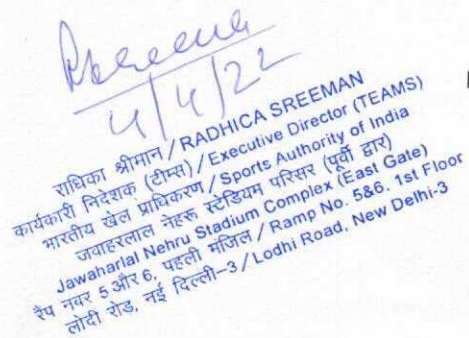 4/4/22
राधिका श्रीमान / RADHICA SREEMAN
कार्यकारी निदेशक (टीम्स) / Executive Director (TEAMS)
भारतीय खेल प्राधिकरण / Sports Authority of India
जवाहरलाल नेहरू स्टेडियम परिसर (पूर्वी द्वार)
Jawaharlal Nehru Stadium Complex (East Gate)
रैंप नंबर 5 और 6, पहली मंजिल / Ramp No. 5&6. 1st Floor
लोदी रोड, नई दिल्ली–3 / Lodhi Road, New Delhi-3